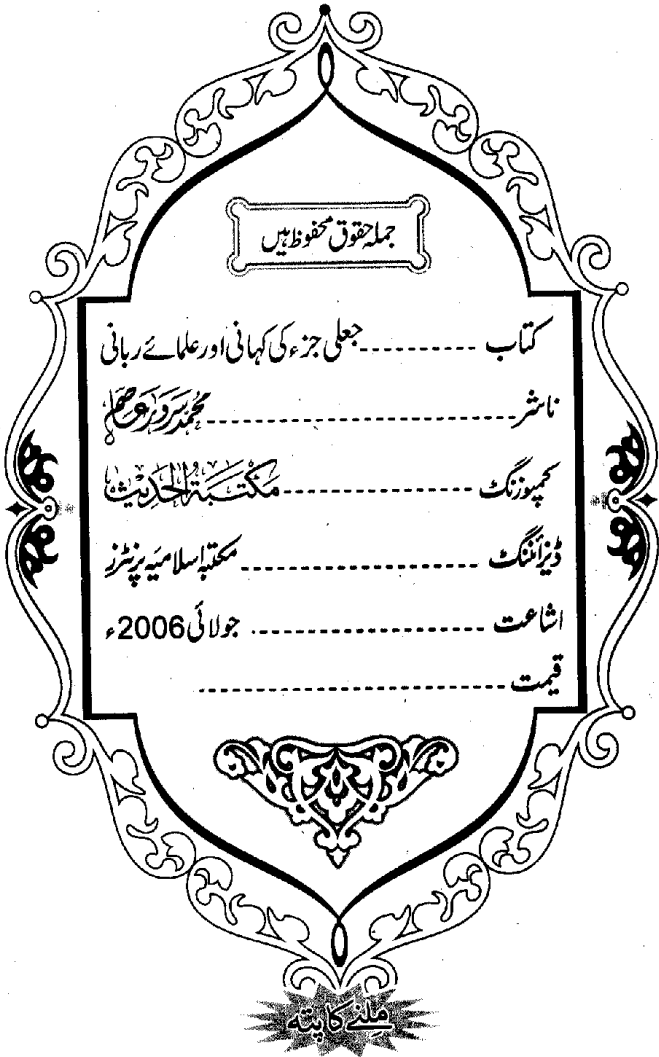 جملہ حقوق محفوظ ہیں
کتاب ---------- جعلی جزء کی کہانی اور علمائے ربانی
ناشر ------------------------------ محمد سرور عاصم
کمپوزنگ -------------------- مکتبۃ الحدیث
ڈیزائننگ ------------------------ مکتبہ اسلامیہ پرنٹرز
اشاعت ------------------------ جولائی 2006ء
قیمت -------------------------------
ملنے کا پتہ